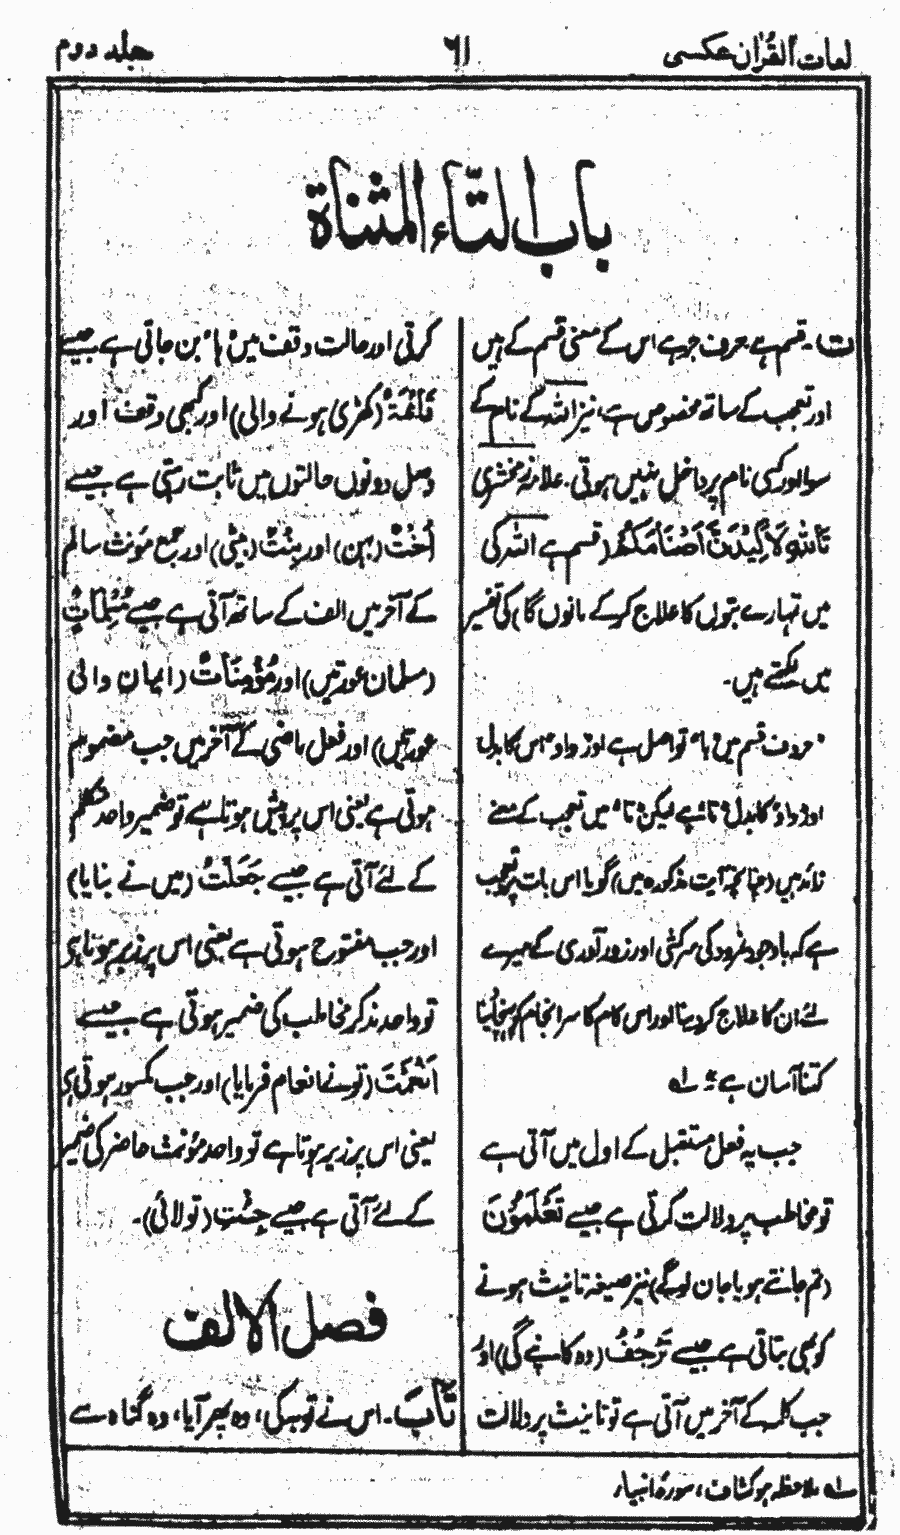 لغات القرآن عکسی
٦١
جلد دوم
باب التّاء المثناة
ت ۔ قسم ہے۔ حرف جر ہے اس کے معنی قسم کے ہیں
اور تعجب کے ساتھ مخصوص ہے، نیز اللہ کے نام کے
سوا اور کسی نام پر داخل نہیں ہوتی۔ علامہ زمخشری
تَاللّٰهِ لَاَكِيْدَنَّ اَصْنَامَكُمْ (قسم ہے اللہ کی
میں تمہارے بتوں کا علاج کر کے مانوں گا) کی تفسیر
میں لکھتے ہیں۔
" حروف قسم میں " باء " تو اصل ہے اور " واو " اس کا بدل
اور " واو " کا بدل " تا " ہے لیکن " تاء " میں تعجب کے معنے
زائد ہیں (چنانچہ آیت مذکورہ میں) گویا اس بات پر تعجب
ہے کہ باوجود نمرود کی سرکشی اور زور آوری کے میرے
لئے ان کا علاج کر دینا اور اس کام کا سرانجام کو پہنچانا
کتنا آسان ہے " لہ
جب یہ فعل مستقبل کے اول میں آتی ہے
تو مخاطب پر دلالت کرتی ہے جیسے تَعْلَمُوْنَ
(تم جانتے ہو یا جان لو گے) نیز صیغہ تانیث ہونے
کو بھی بتاتی ہے جیسے تَرْجُفُ (وہ کانپے گی) اور
جب کلمہ کے آخر میں آتی ہے تو تانیث پر دلالت
کرتی اور حالت وقف میں " ہا " بن جاتی ہے جیسے
قَائِمَةٌ (کھڑی ہونے والی) اور کبھی وقف اور
وصل دونوں حالتوں میں ثابت رہتی ہے جیسے
اُخْتٌ (بہن) اور بِنْتٌ (بیٹی) اور جمع مؤنث سالم
کے آخر میں الف کے ساتھ آتی ہے جیسے مُسْلِمَاتٌ
(مسلمان عورتیں) اور مُؤْمِنَاتٌ (ایمان والی
عورتیں) اور فعل ماضی کے آخر میں جب مضموم
ہوتی ہے یعنی اس پر پیش ہوتا ہے تو ضمیر واحد متکلم
کے لئے آتی ہے جیسے جَعَلْتُ (میں نے بنایا)
اور جب مفتوح ہوتی ہے یعنی اس پر زبر ہوتا ہے
تو واحد مذکر مخاطب کی ضمیر ہوتی ہے جیسے
اَنْعَمْتَ (تو نے انعام فرمایا) اور جب مکسور ہوتی ہے
یعنی اس پر زیر ہوتا ہے تو واحد مؤنث حاضر کی ضمیر
کے لئے آتی ہے جیسے جِئْتِ (تو لائی)۔
فصل الالف
تَابَ۔ اس نے توبہ کی، وہ پھر آیا، وہ گناہ سے
لہ ملاحظہ ہو کشاف، سورۂ انبیاء